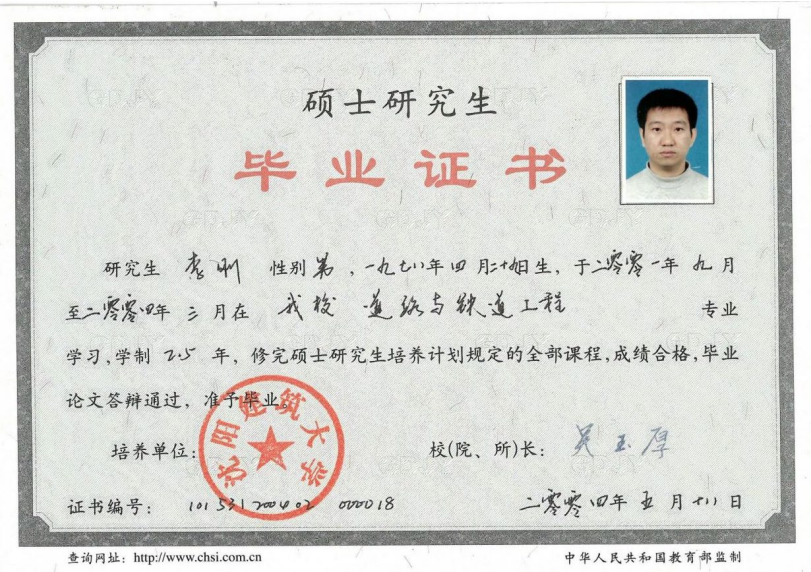 硕士研究生
毕业证书
研究生 李刚 性别 男，一九七八年四月二十九日生，于二零零一年九月
至二零零四年 三月在 我校 道路与铁道工程 专业
学习，学制 2.5 年，修完硕士研究生培养计划规定的全部课程，成绩合格，毕业
论文答辩通过，准予毕业。
沈阳建筑大学
培养单位： 校(院、所)长：吴玉厚
证书编号： 101531200402 000018 二零零四年五月十八日
查询网址：http://www.chsi.com.cn 中华人民共和国教育部监制